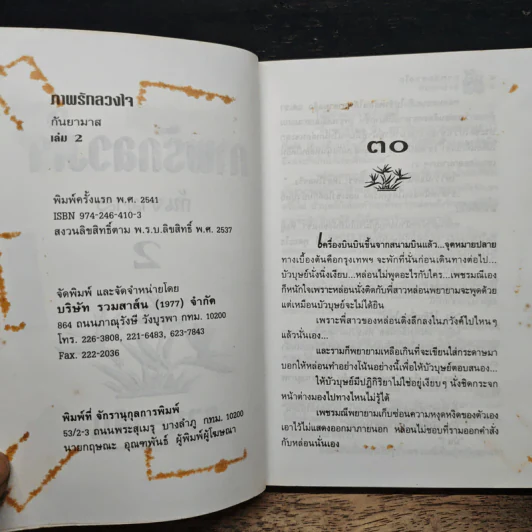 ภาพรักลวงใจ
กันยามาส
เล่ม 2
พิมพ์ครั้งแรก พ.ศ. 2541
ISBN 974-246-410-3
สงวนลิขสิทธิ์ตาม พ.ร.บ.ลิขสิทธิ์ พ.ศ. 2537
จัดพิมพ์ และจัดจำหน่ายโดย
บริษัท รวมสาส์น (1977) จำกัด
864 ถนนภาณุรังษี วังบูรพา กทม. 10200
โทร. 226-3808, 221-6483, 623-7843
Fax. 222-2036
พิมพ์ที่ จักรานุกูลการพิมพ์
53/2-3 ถนนพระสุเมรุ บางลำภู กทม. 10200
นายกฤษณะ อุณฑพันธ์ ผู้พิมพ์ผู้โฆษณา
๓๐
เครื่องบินบินขึ้นจากสนามบินแล้ว...จุดหมายปลาย
ทางเบื้องต้นคือกรุงเทพฯ จะพักที่นั่นก่อนเดินทางต่อไป...
บัวบุษย์นั่งนิ่งเงียบ...หล่อนไม่พูดอะไรกับใคร...เพชรมณีเอง
ก็หนักใจเพราะหล่อนนั่งติดกับพี่สาวหล่อนพยายามจะพูดด้วย
แต่เหมือนบัวบุษย์จะไม่ได้ยิน
เพราะพี่สาวของหล่อนดิ่งลึกลงในภวังค์ไปไหนๆ
แล้วนั่นเอง...
และรามก็พยายามเหลือเกินที่จะเขียนใส่กระดาษมา
บอกให้หล่อนทำอย่างโน้นอย่างนี้เพื่อให้บัวบุษย์ตอบสนอง...
ให้บัวบุษย์มีปฏิกิริยาไม่ใช่อยู่เงียบๆ นั่งชิดกระจก
หน้าต่างมองไปทางไหนไม่รู้ได้
เพชรมณีพยายามเก็บซ่อนความหงุดหงิดของตัวเอง
เอาไว้ไม่แสดงออกมาภายนอก หล่อนไม่ชอบที่รามออกคำสั่ง
กับหล่อนนั่นเอง